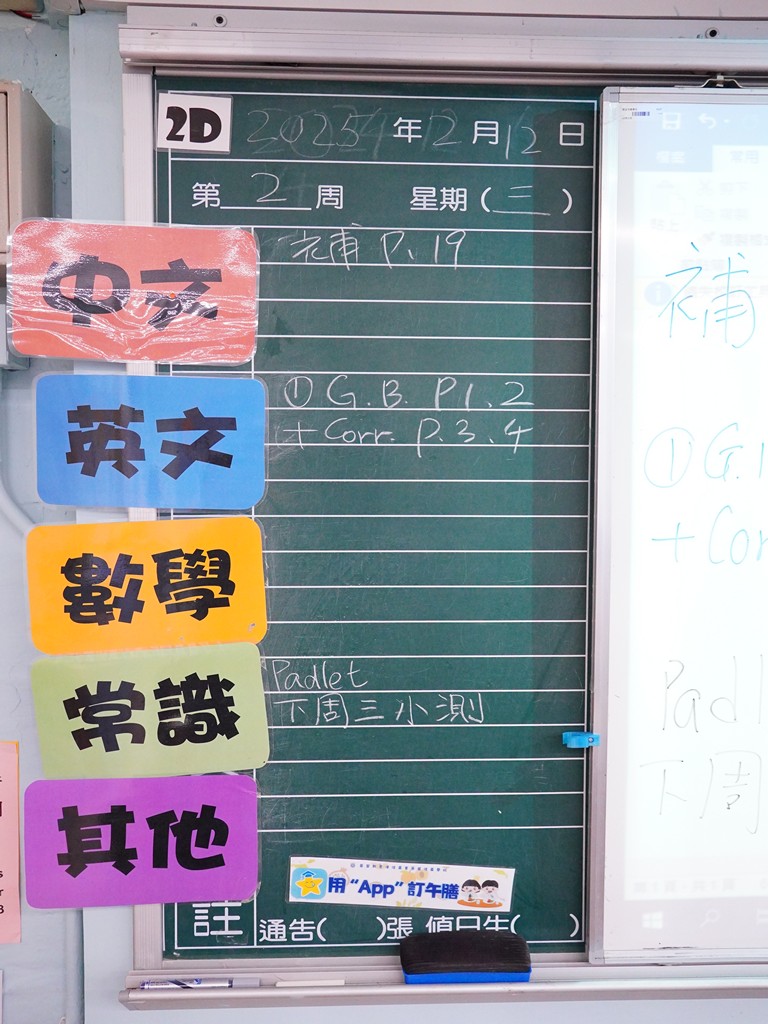 2D 2025年2月12日
第2周 星期(三)
中文 補 P. 19
英文 ① G.B. P1.2
+ Corr. P.3.4
數學
常識 Padlet
下周三小測
其他
用“App”訂午膳
註 通告( )張 值日生( )
補
① G.
+ Cor
Padl
下周